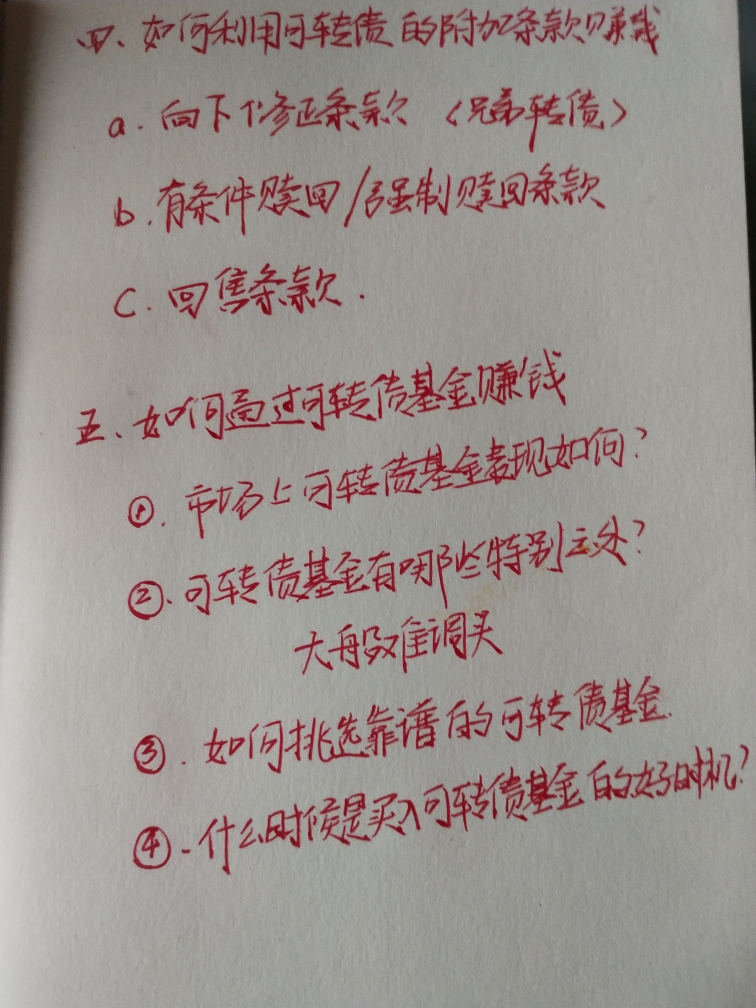 四、如何利用可转债的附加条款赚钱
a. 向下修正条款（兄弟转债）
b. 有条件赎回/强制赎回条款
C. 回售条款.
五、如何通过可转债基金赚钱
①. 市场上可转债基金表现如何?
②. 可转债基金有哪些特别之处?
大船难调头
③. 如何挑选靠谱的可转债基金.
④. 什么时候是买入可转债基金的好时机?